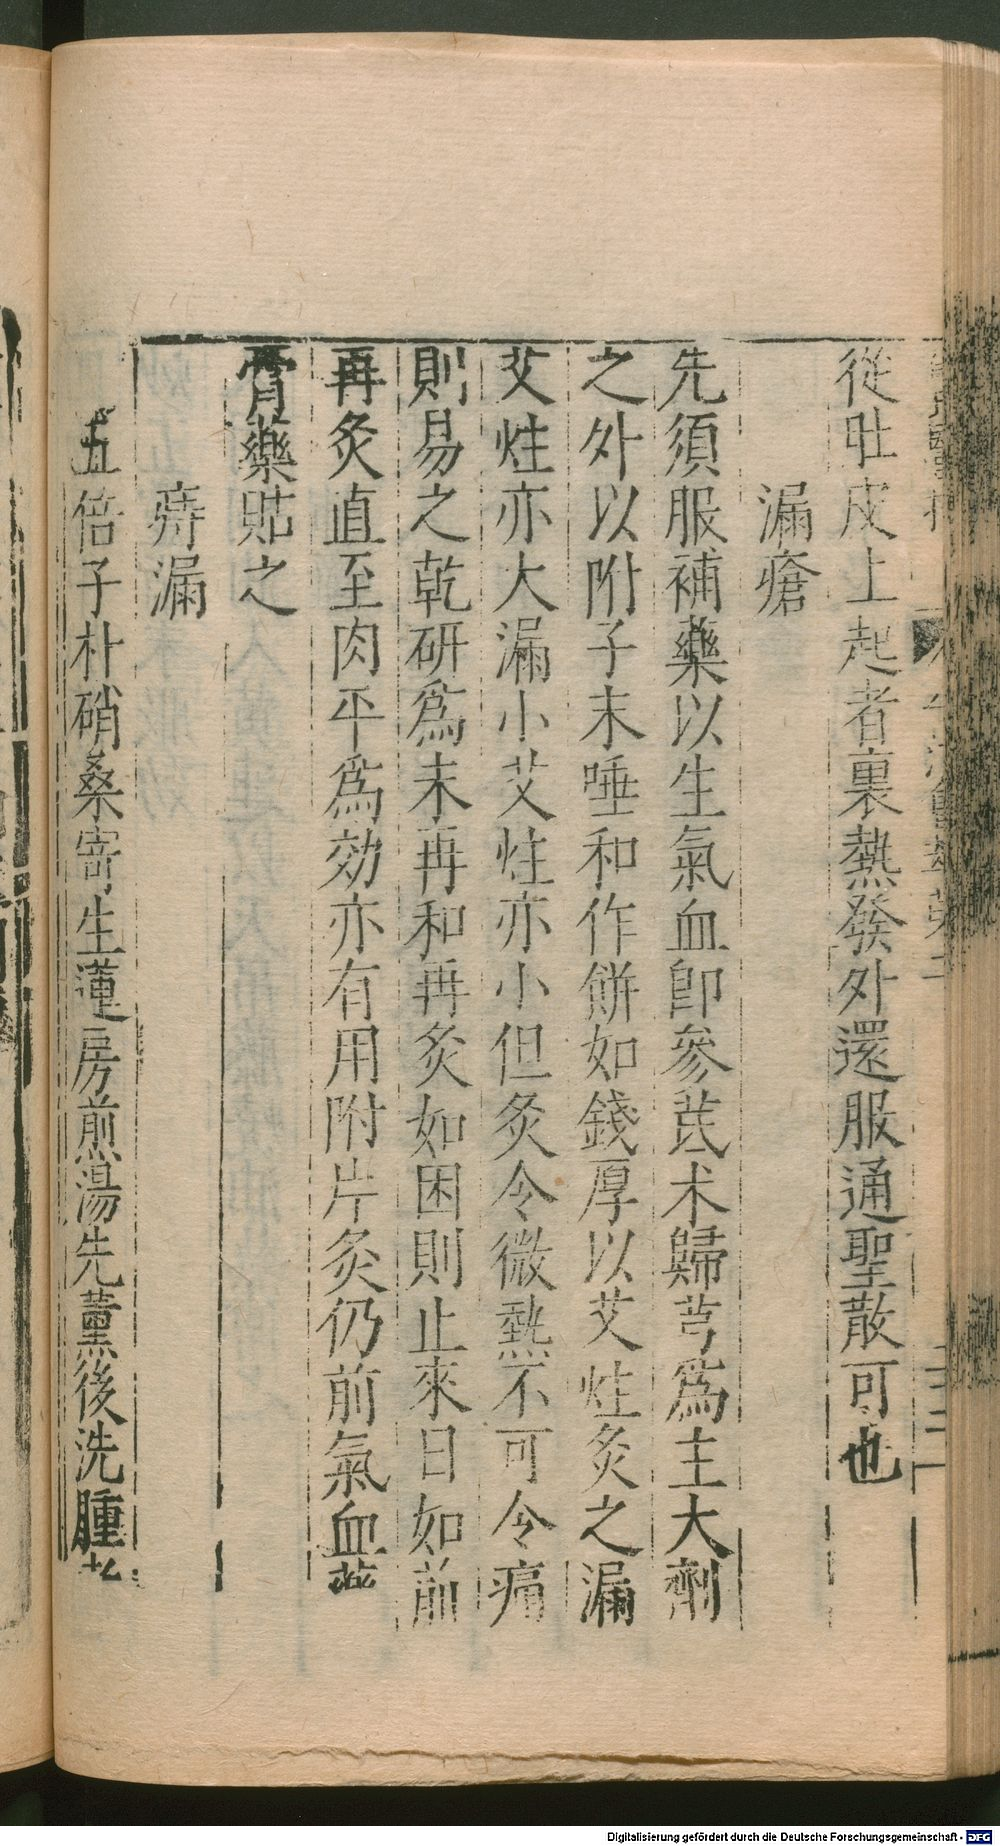 從肚皮上起者裏熱發外還服通聖散可也
漏瘡
先須服補藥以生氣血卽參芪朮歸芎爲主大劑
之外以附子末唾和作餅如錢厚以艾炷灸之漏
艾炷亦大漏小艾炷亦小但灸令微熱不可令痛
則易之乾研爲末再和再灸如困則止來日如前
再灸直至肉平爲効亦有用附片灸仍前氣血藥
膏藥貼之
痔漏
五倍子朴硝桑寄生蓮房煎湯先薰後洗腫者
Digitalisierung gefördert durch die Deutsche Forschungsgemeinschaft - DFG